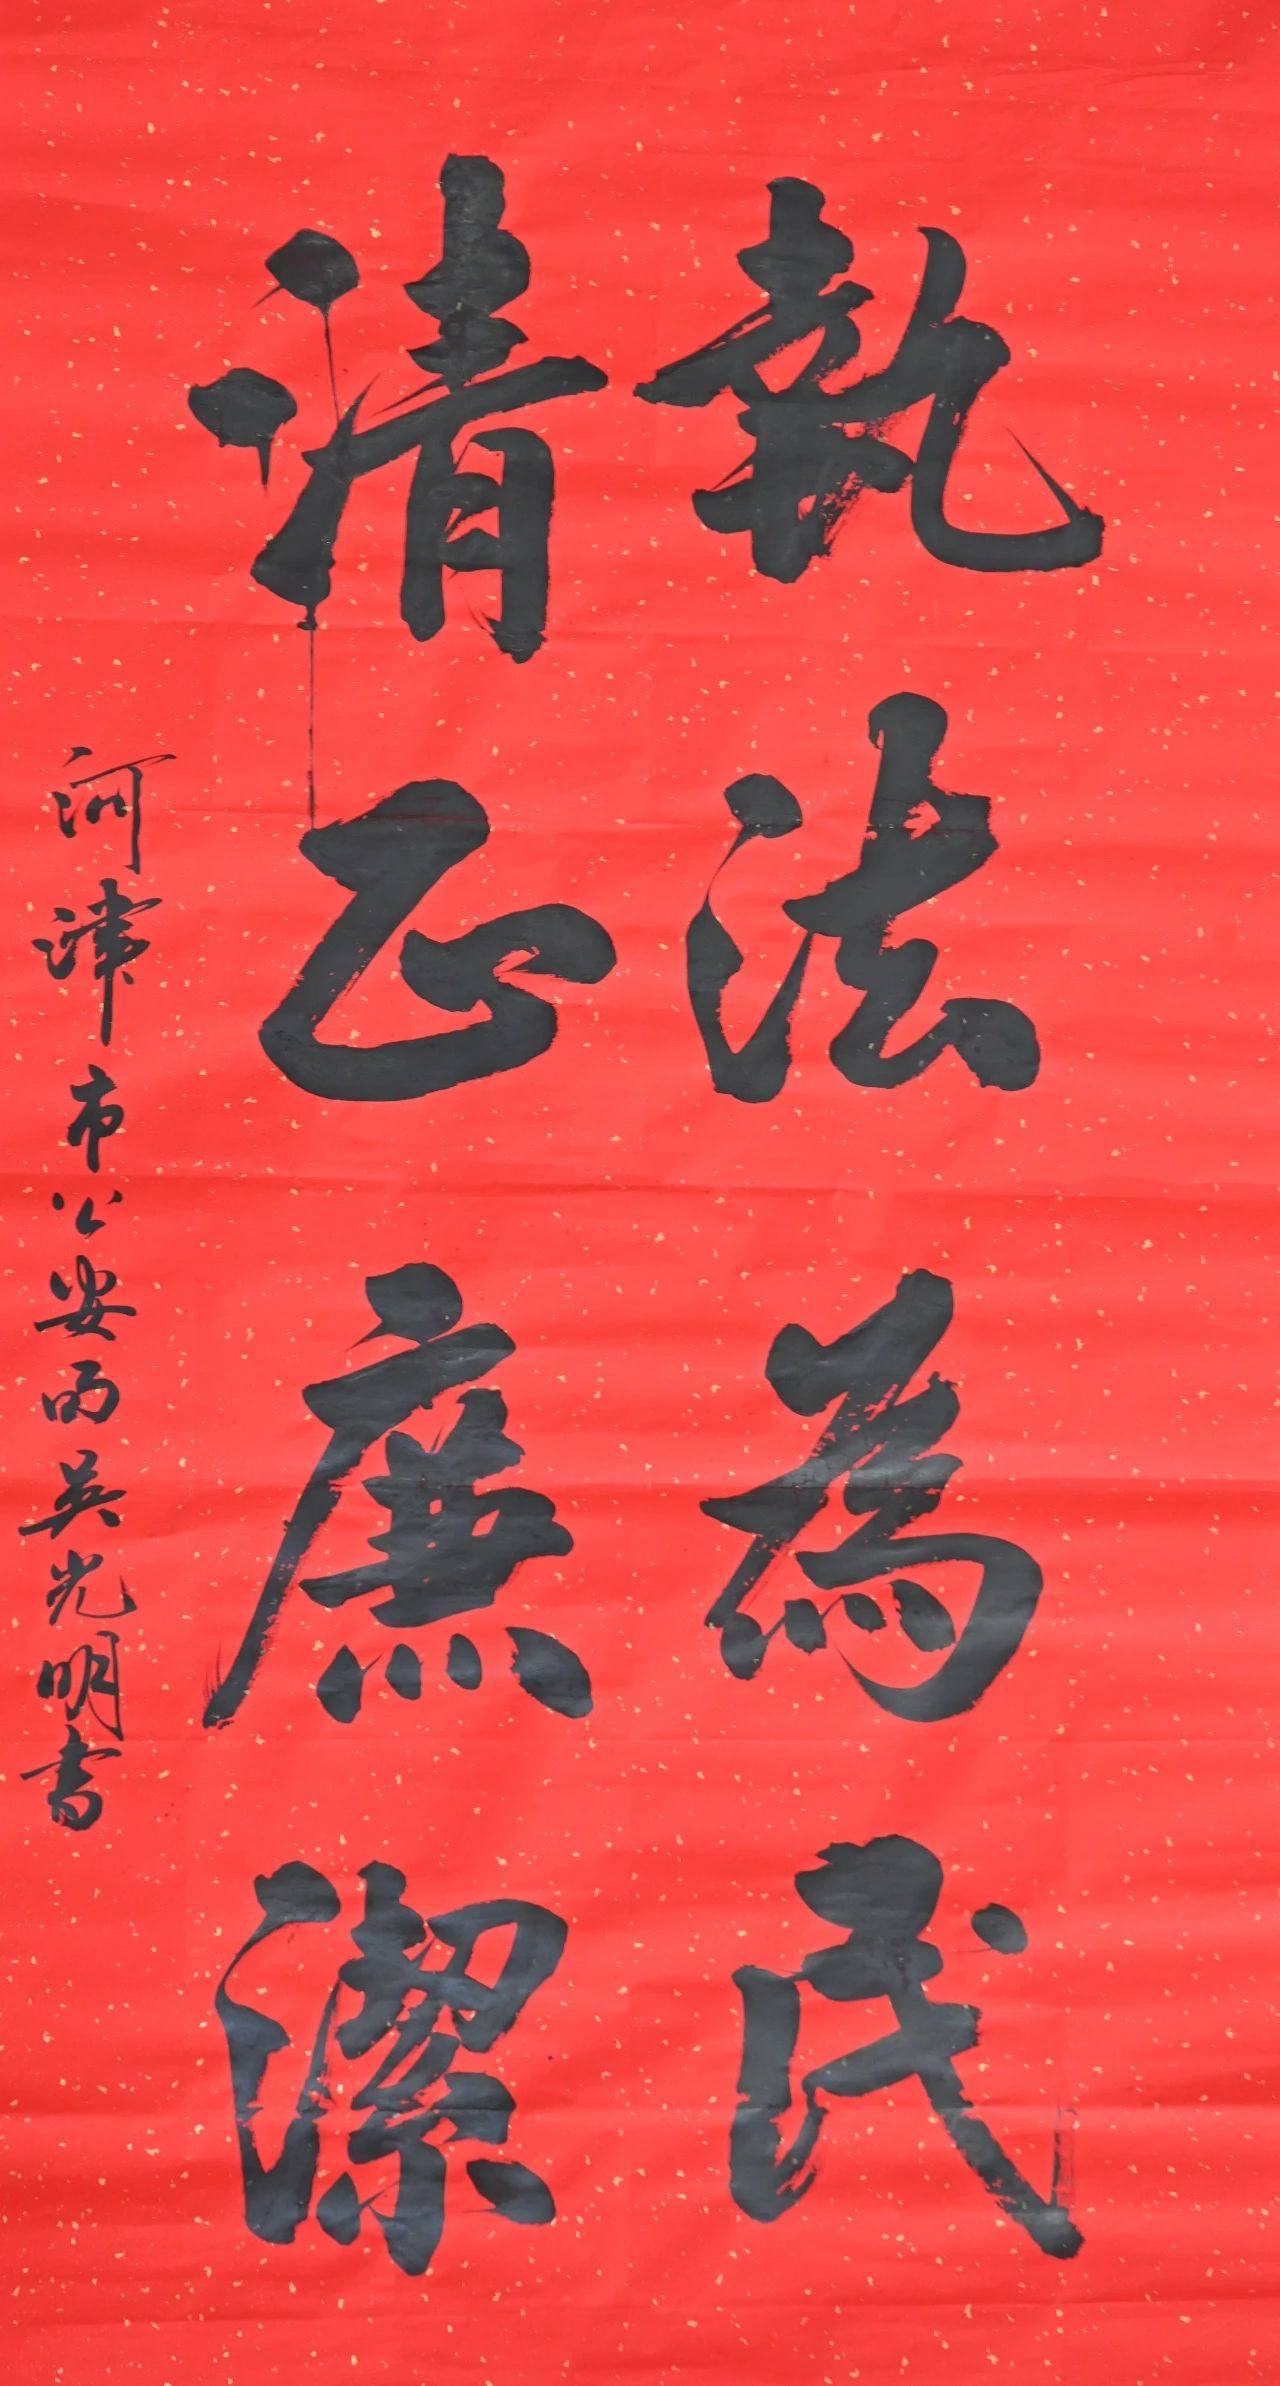 執法為民
清正廉潔
河津市公安局吴光明书